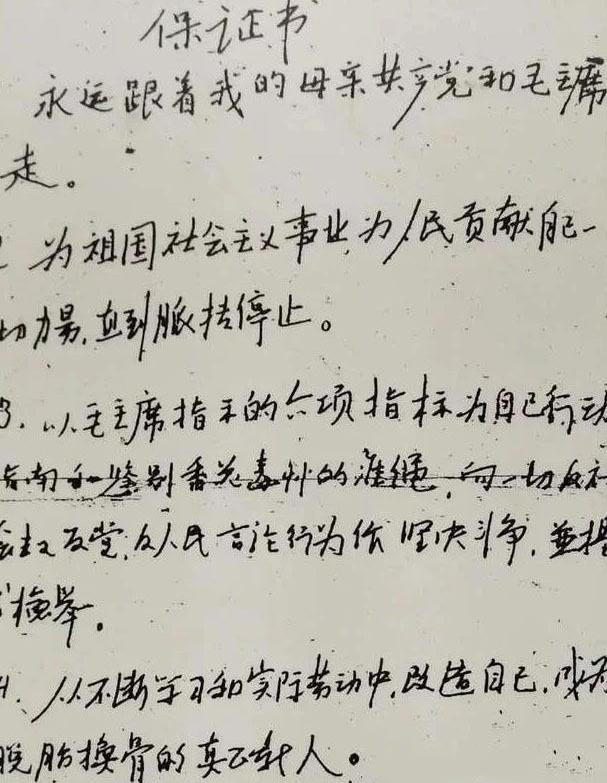 保证书
永远跟着我的母亲共产党和毛主席
走。
为祖国社会主义事业,为人民贡献自己一
切力量,直到脉搏停止。
3.以毛主席指示的六项指标为自己行动
指南和鉴别香花毒草的准绳,向一切反社
会主义反党,反人民言论行为作坚决斗争,并提
检举。
4.从不断学习和实际劳动中,改造自己,成为
脱胎换骨的真正新人。